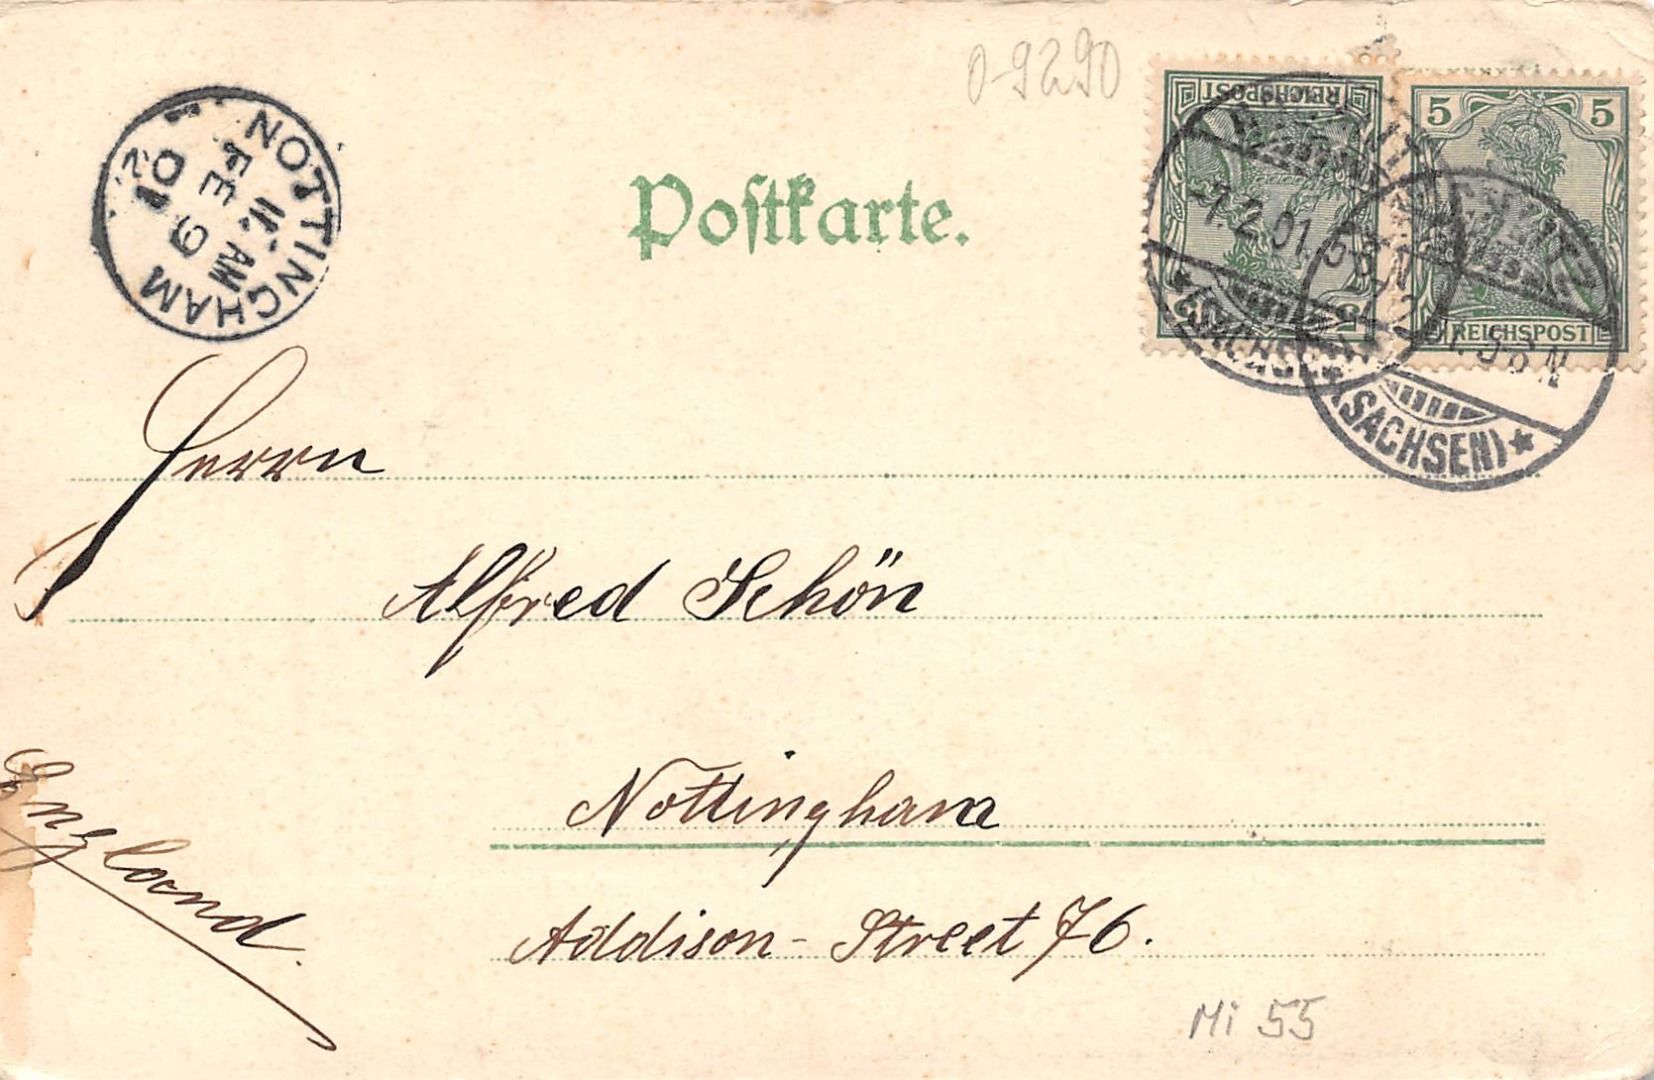 0-9290
NOTTINGHAM
11. AM
FE 9
01
REICHSPOST
REICHSPOST
5 5
REICHSPOST
-7.2.01. 5-6 N
(SACHSEN)
(SACHSEN)
Postkarte.
Herrn
Alfred Schön
Nottingham
Addison-Street 76.
England.
Mi 55